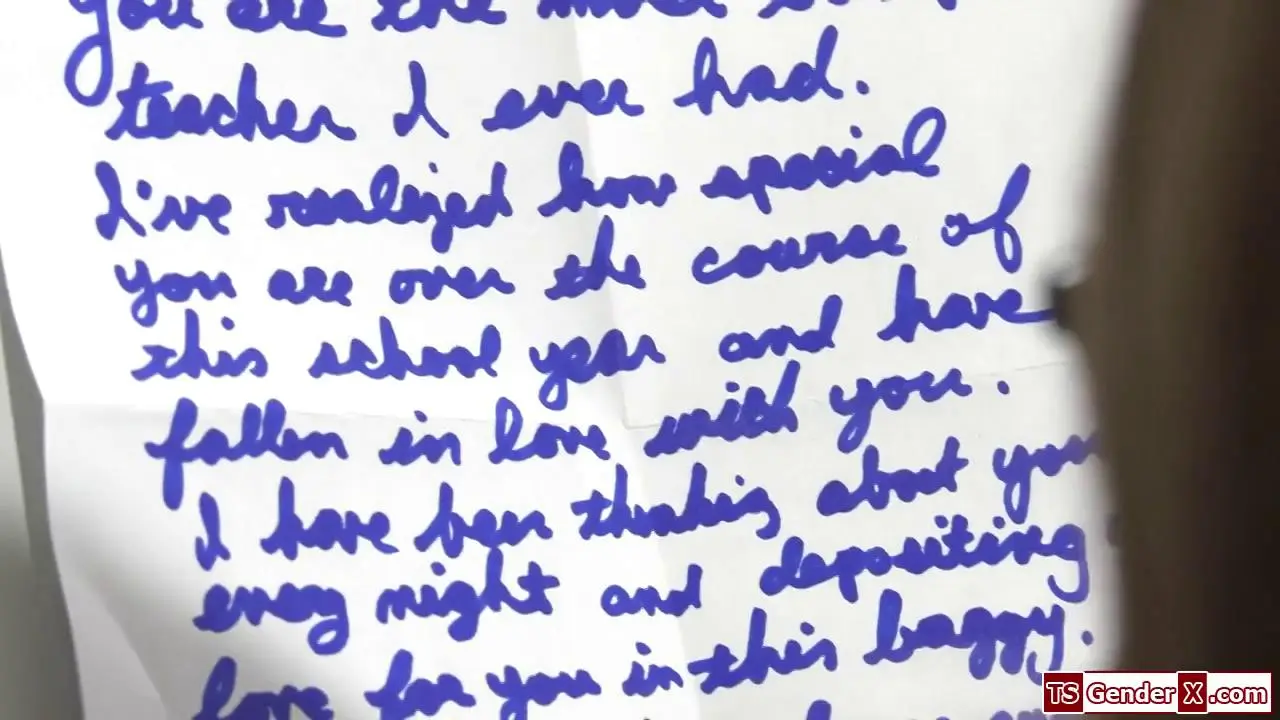 you are the most
teacher I ever had.
I've realized how special
you are over the course of
this school year and have
fallen in love with you.
I have been thinking about you
every night and depositing
love for you in this baggy.
TS Gender X .com